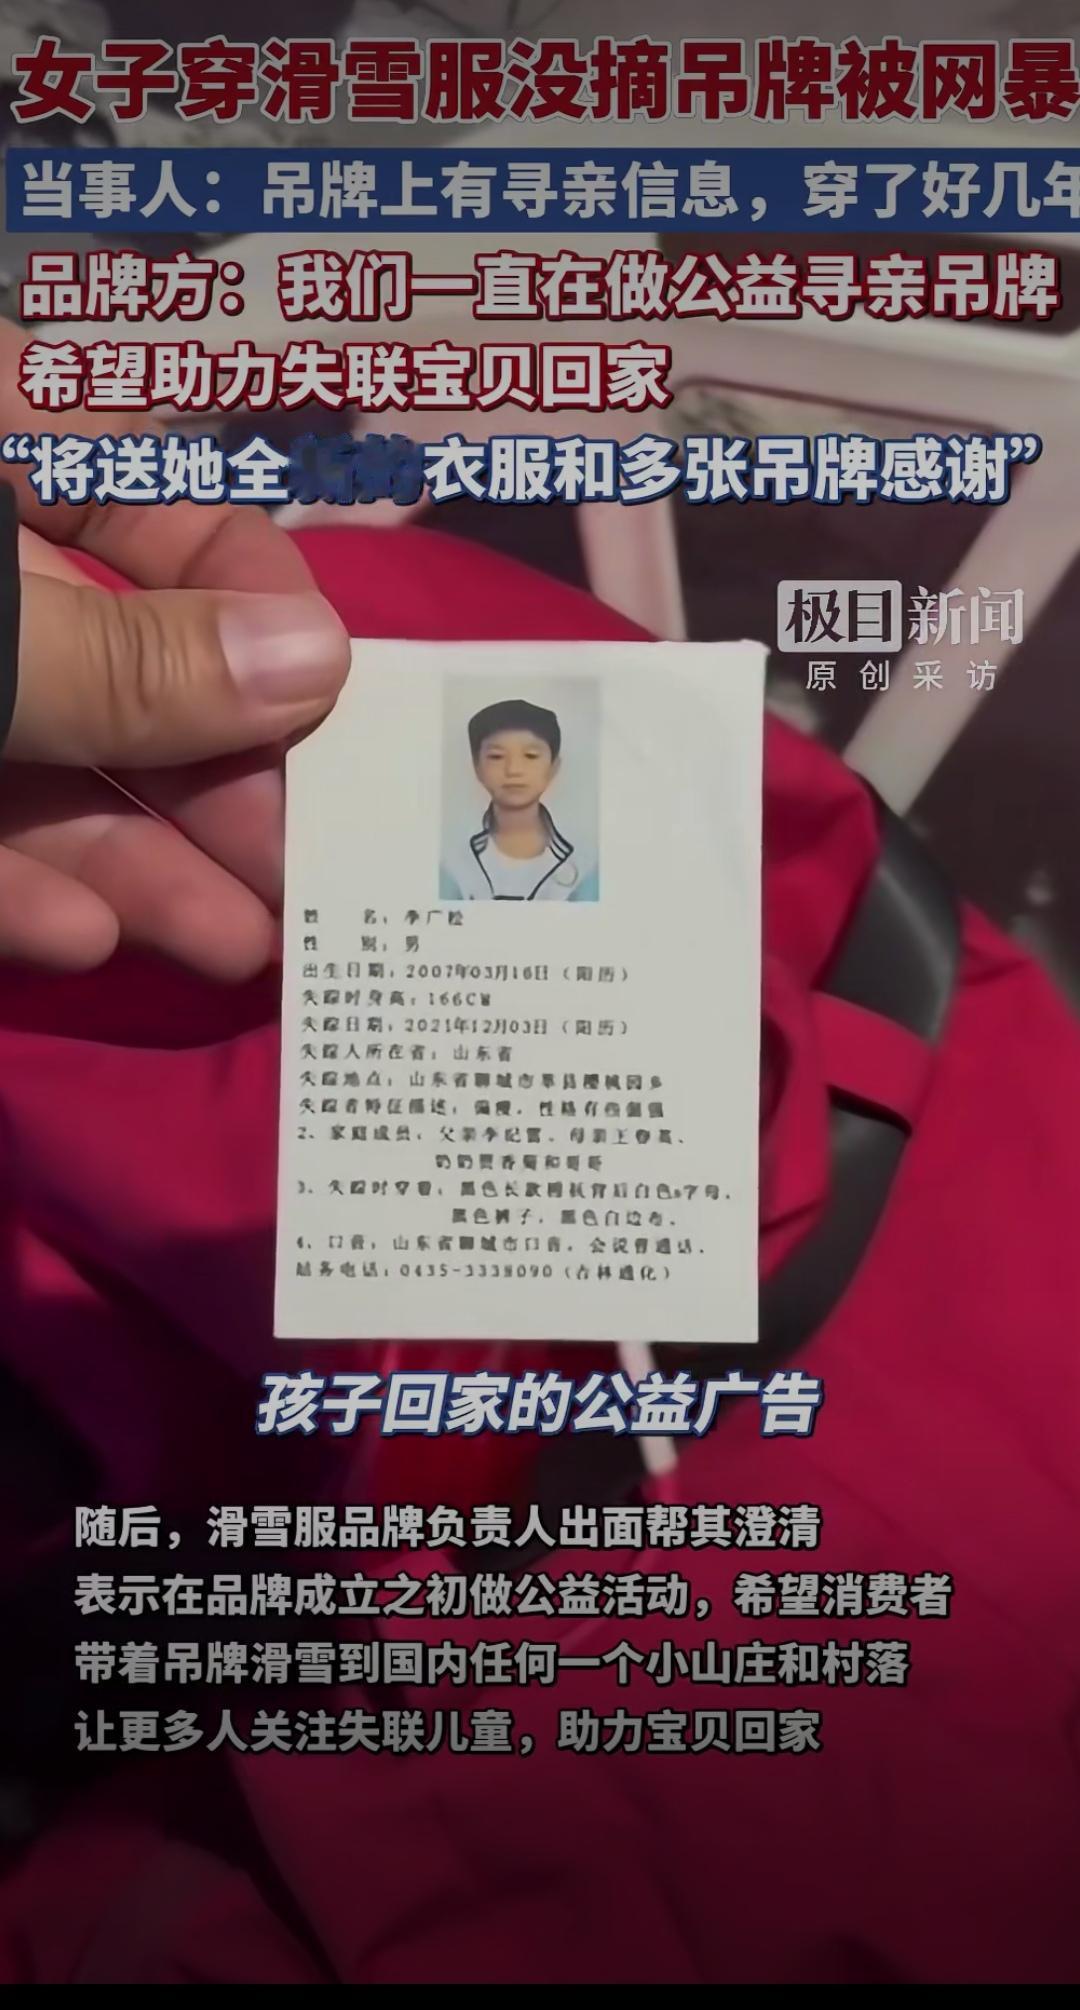 女子穿滑雪服没摘吊牌被网暴
当事人：吊牌上有寻亲信息，穿了好几年
品牌方：我们一直在做公益寻亲吊牌
希望助力失联宝贝回家
“将送她全 衣服和多张吊牌感谢”
极目新闻
原创采访
姓 名：李广松
性 别：男
出生日期：2007年03月16日（阳历）
失踪时身高：166CM
失踪日期：2021年12月03日（阳历）
失踪人所在省：山东省
失踪地点：山东省聊城市莘县樱桃园乡
失踪者特征描述：偏瘦，性格有些倔强
2、家庭成员：父亲李纪 、母亲王春英、
奶奶贾香菊和哥哥
3、失踪时穿着：黑色长款 背后白色s字母，
黑色裤子，黑色白边布。
4、口音：山东省聊城市口音，会说普通话。
服务电话：0435-3338090（吉林通化）
孩子回家的公益广告
随后，滑雪服品牌负责人出面帮其澄清
表示在品牌成立之初做公益活动，希望消费者
带着吊牌滑雪到国内任何一个小山庄和村落
让更多人关注失联儿童，助力宝贝回家